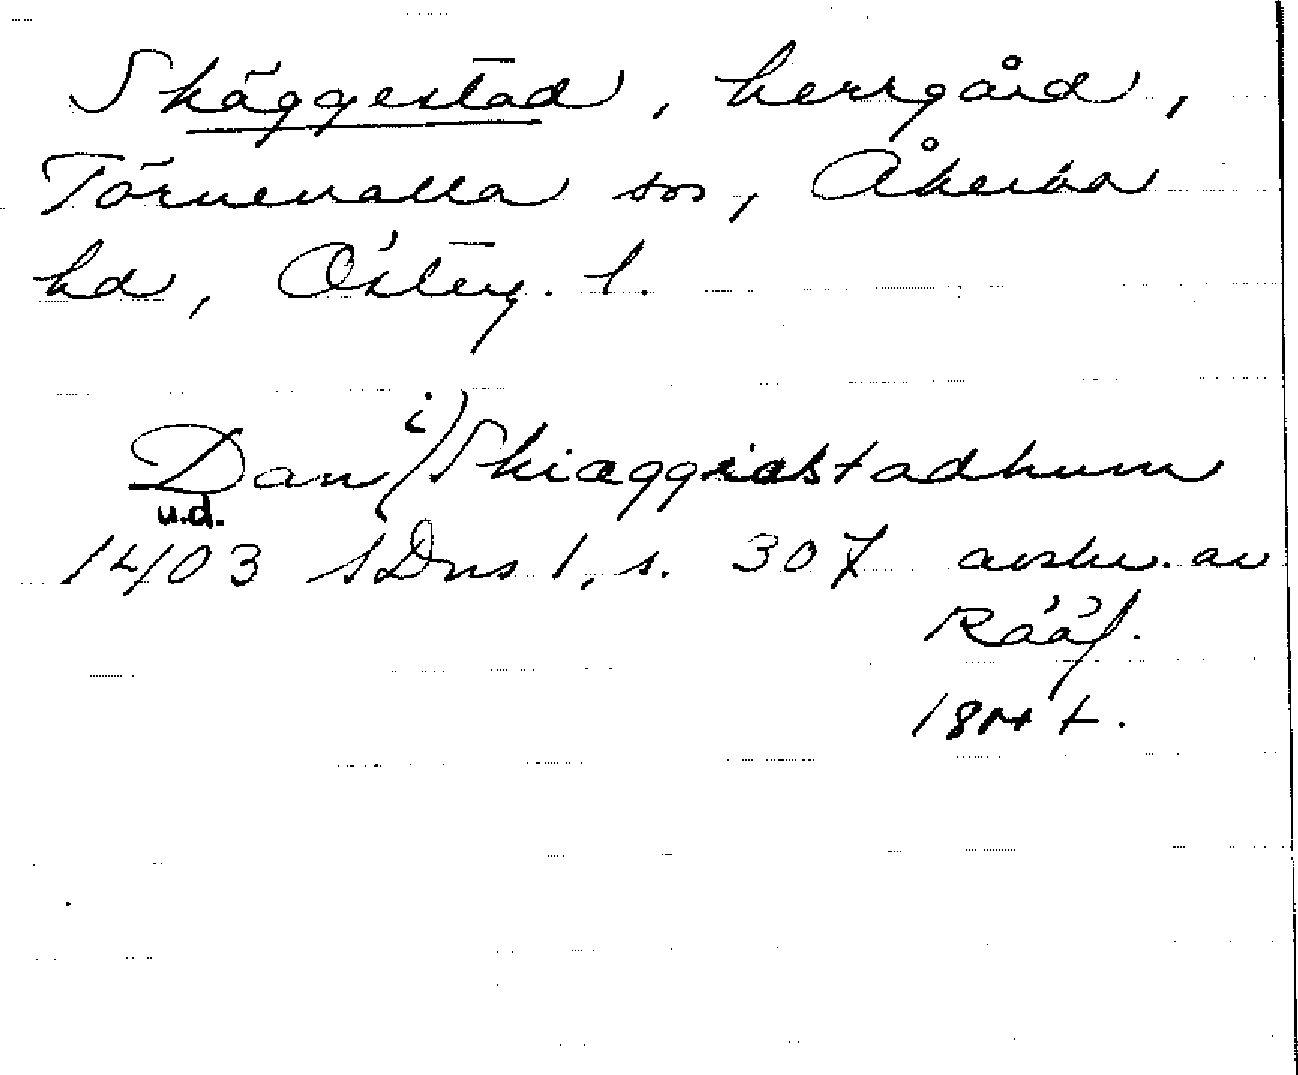 Skäggestad, herrgård,
Törnevalla sn, Åkerbo
hd, Österg. l.
Dan i) Skiæggiastadhum
u.d.
1403 SDns 1, s. 307 avskr. av
Rääf.
18